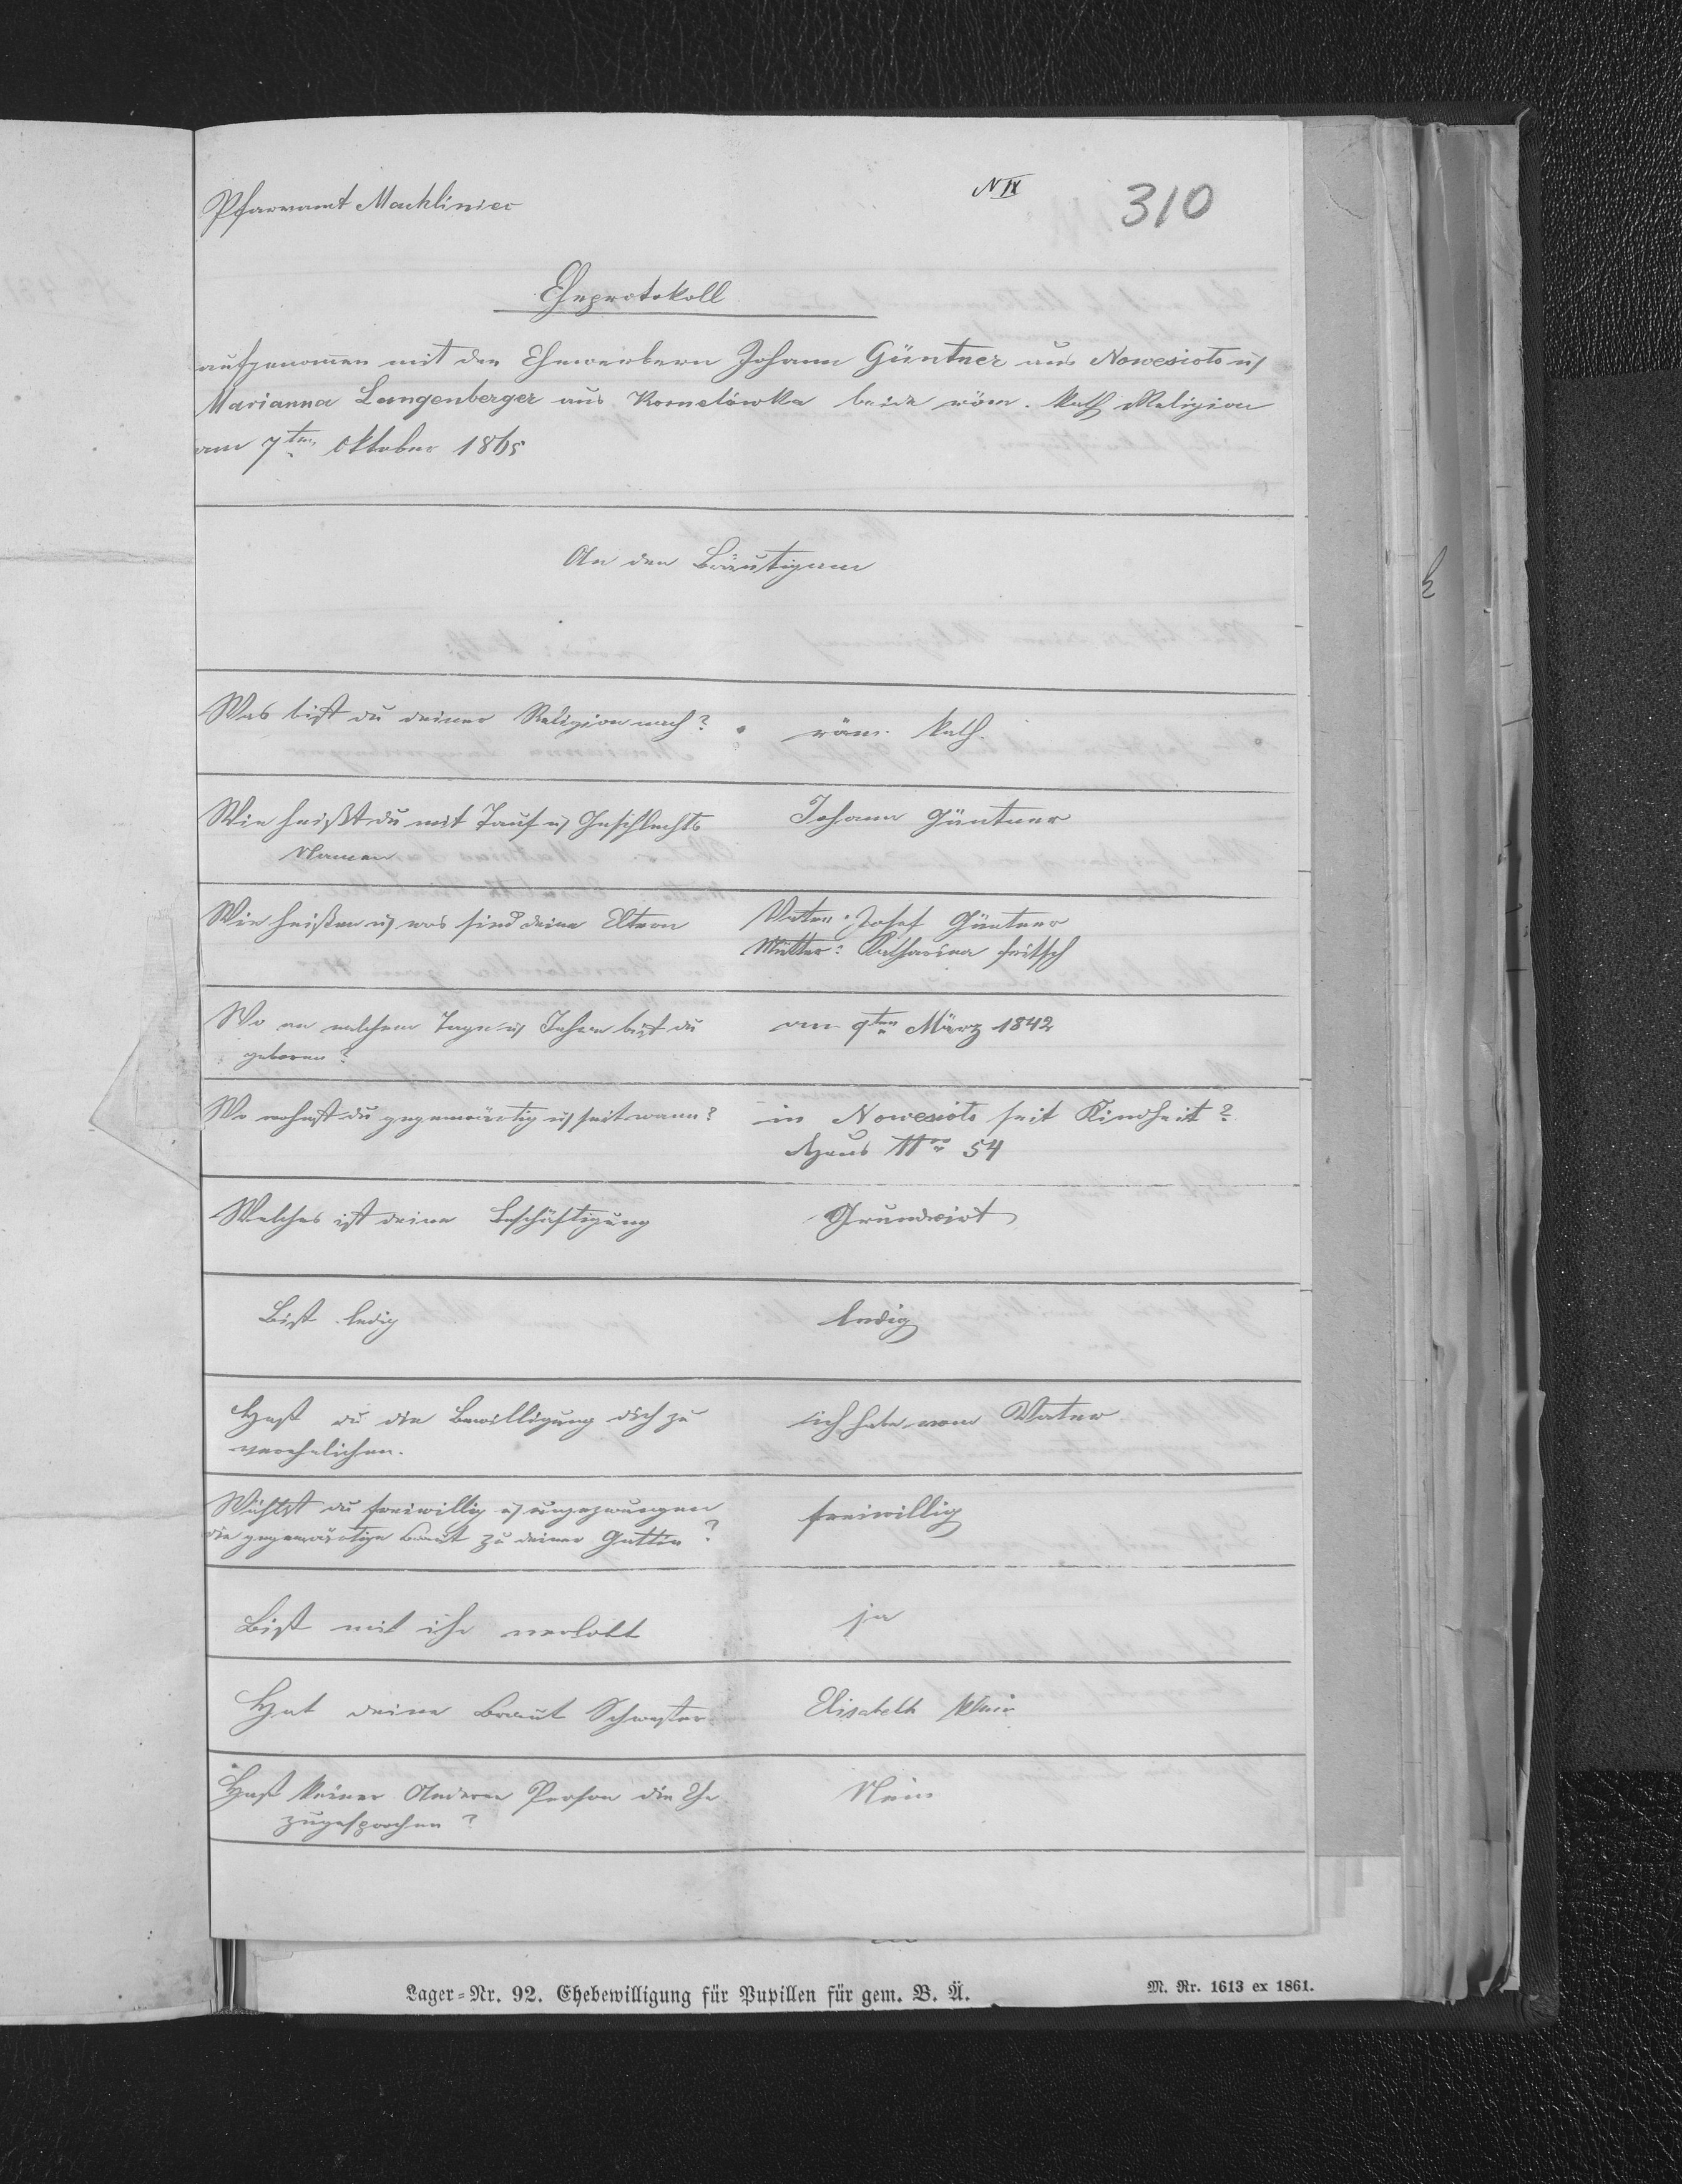 Pfarramt Machliniec
N IX
310
Eheprotokoll
aufgenomen mit den Ehewerbern Johann Güntner aus Nowesioło u
Marianna Langenberger aus Kornelówka beide röm. kath Religion
am 7ten Oktober 1865
An den Bräutigam
Was bist du deiner Religion nach?
röm. kath.
Wie heißt du mit Tauf u Geschlechts
Namen
Johann Güntner
Wie heißen u was sind deine Eltern
Vater: Josef Güntner
Mutter: Katharina Fritsch
Wo an welchem Tage u Jahre bist du
geboren?
am 9ten März 1842
Wo wohnst du gegenwärtig u seit wann?
in Nowesioło seit Kindheit?
Haus Nro 54
Welches ist deine Beschäftigung
Grundwirt
Bist ledig
ledig
Hast du die Bewilligung dich zu
verehelichen.
ich habe vom Vater
Wählst du freiwillig u ungezwungen
die gegenwärtige Braut zu deiner Gattin?
freiwillig
Bist mit ihr verlobt
ja
Hat deine Braut Schwester
Elisabeth
Hast keiner Anderen Person die Ehe
zugesprochen?
Nein
Lager-Nr. 92. Ehebewilligung für Pupillen für gem. B. Ä.
M. Nr. 1613 ex 1861.